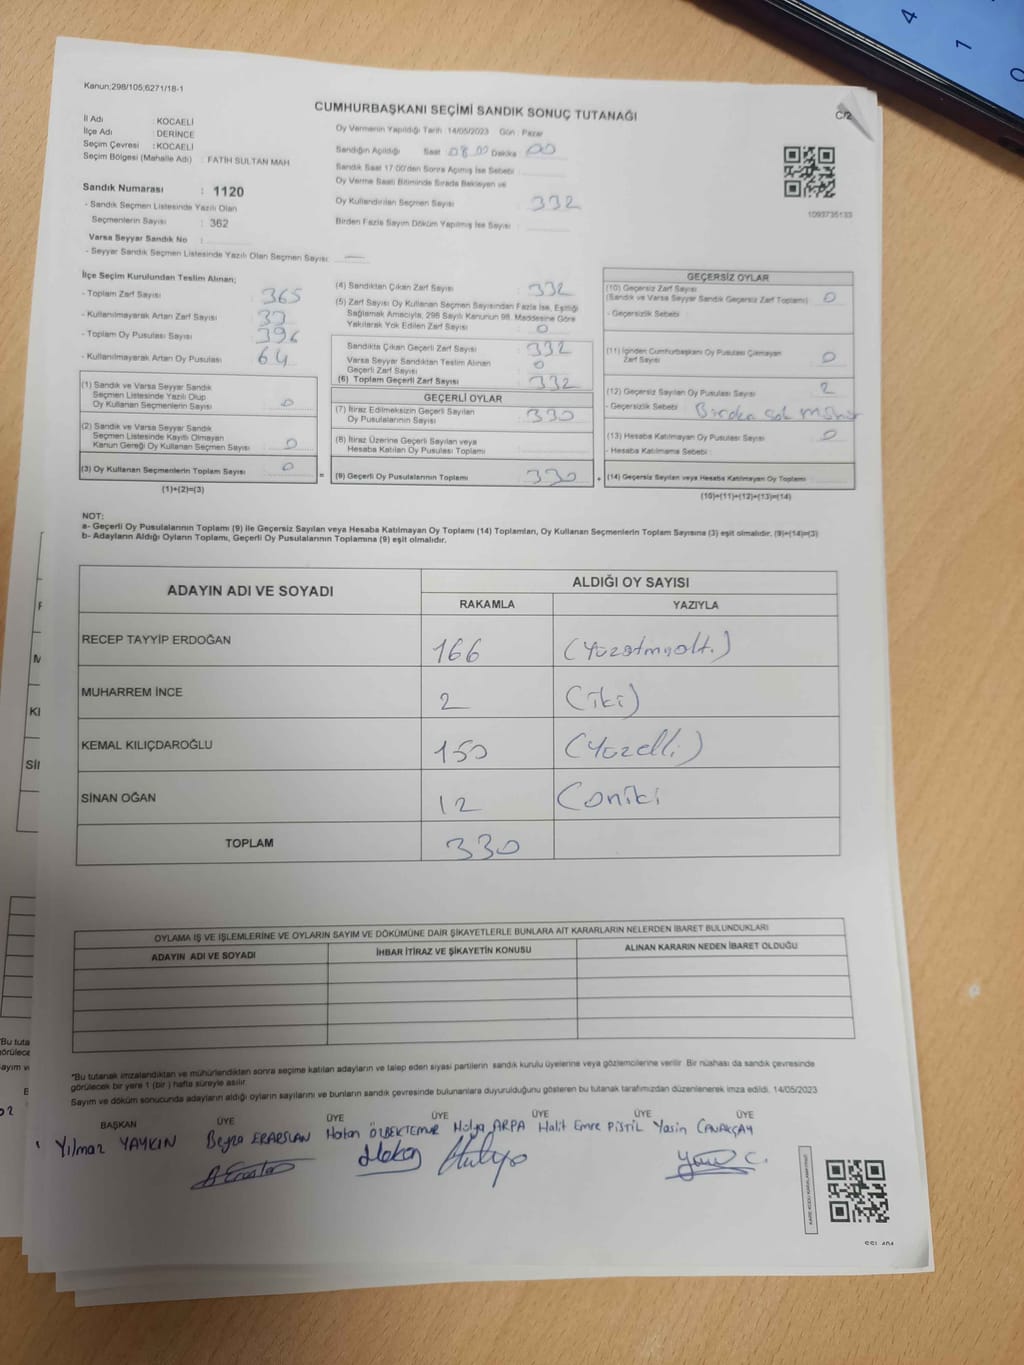 Kanun;298/105;6271/18-1
CUMHURBAŞKANI SEÇİMİ SANDIK SONUÇ TUTANAĞI
C/2
İl Adı : KOCAELİ
İlçe Adı : DERİNCE
Seçim Çevresi : KOCAELİ
Seçim Bölgesi (Mahalle Adı) : FATİH SULTAN MAH
Sandık Numarası : 1120
- Sandık Seçmen Listesinde Yazılı Olan
Seçmenlerin Sayısı : 362
Varsa Seyyar Sandık No :
- Seyyar Sandık Seçmen Listesinde Yazılı Olan Seçmen Sayısı:
Oy Vermenin Yapıldığı Tarih : 14/05/2023 Gün : Pazar
Sandığın Açıldığı Saat 08.00 Dakika 00
Sandık Saat 17:00'den Sonra Açılmış İse Sebebi
Oy Verme Saati Bitiminde Sırada Bekleyen ve
Oy Kullandırılan Seçmen Sayısı : 332
Birden Fazla Sayım Döküm Yapılmış İse Sayısı :
1093735133
İlçe Seçim Kurulundan Teslim Alınan;
- Toplam Zarf Sayısı : 365
- Kullanılmayarak Artan Zarf Sayısı : 33
- Toplam Oy Pusulası Sayısı : 396
- Kullanılmayarak Artan Oy Pusulası : 64
(1) Sandık ve Varsa Seyyar Sandık
Seçmen Listesinde Yazılı Olup
Oy Kullanan Seçmenlerin Sayısı : 0
(2) Sandık ve Varsa Seyyar Sandık
Seçmen Listesinde Kayıtlı Olmayan
Kanun Gereği Oy Kullanan Seçmen Sayısı : 0
(3) Oy Kullanan Seçmenlerin Toplam Sayısı : 0
(1)+(2)=(3)
(4) Sandıktan Çıkan Zarf Sayısı : 332
(5) Zarf Sayısı Oy Kullanan Seçmen Sayısından Fazla İse, Eşitliği
Sağlamak Amacıyla, 298 Sayılı Kanunun 98. Maddesine Göre
Yakılarak Yok Edilen Zarf Sayısı : 0
Sandıkta Çıkan Geçerli Zarf Sayısı : 332
Varsa Seyyar Sandıktan Teslim Alınan
Geçerli Zarf Sayısı : 0
(6) Toplam Geçerli Zarf Sayısı : 332
GEÇERLİ OYLAR
(7) İtiraz Edilmeksizin Geçerli Sayılan
Oy Pusulalarının Sayısı : 330
(8) İtiraz Üzerine Geçerli Sayılan veya
Hesaba Katılan Oy Pusulası Toplamı
= (9) Geçerli Oy Pusulalarının Toplamı : 330
GEÇERSİZ OYLAR
(10) Geçersiz Zarf Sayısı
(Sandık ve Varsa Seyyar Sandık Geçersiz Zarf Toplamı) : 0
- Geçersizlik Sebebi
(11) İçinden Cumhurbaşkanı Oy Pusulası Çıkmayan
Zarf Sayısı : 0
(12) Geçersiz Sayılan Oy Pusulası Sayısı : 2
- Geçersizlik Sebebi :
(13) Hesaba Katılmayan Oy Pusulası Sayısı : 0
- Hesaba Katılmama Sebebi :
+ (14) Geçersiz Sayılan veya Hesaba Katılmayan Oy Toplamı :
(10)+(11)+(12)+(13)=(14)
NOT:
a- Geçerli Oy Pusulalarının Toplamı (9) ile Geçersiz Sayılan veya Hesaba Katılmayan Oy Toplamı (14) Toplamları, Oy Kullanan Seçmenlerin Toplam Sayısına (3) eşit olmalıdır. (9)+(14)=(3)
b- Adayların Aldığı Oyların Toplamı, Geçerli Oy Pusulalarının Toplamına (9) eşit olmalıdır.
ADAYIN ADI VE SOYADI
ALDIĞI OY SAYISI
RAKAMLA YAZIYLA
RECEP TAYYİP ERDOĞAN 166 (Yüzatmışalt.)
MUHARREM İNCE 2 (iki)
KEMAL KILIÇDAROĞLU 150 (Yüzelli)
SİNAN OĞAN 12 (oniki
TOPLAM 330
OYLAMA İŞ VE İŞLEMLERİNE VE OYLARIN SAYIM VE DÖKÜMÜNE DAİR ŞİKAYETLERLE BUNLARA AİT KARARLARIN NELERDEN İBARET BULUNDUKLARI
ADAYIN ADI VE SOYADI İHBAR İTİRAZ VE ŞİKAYETİN KONUSU ALINAN KARARIN NEDEN İBARET OLDUĞU
"Bu tutanak imzalandıktan ve mühürlendikten sonra seçime katılan adayların ve talep eden siyasi partilerin sandık kurulu üyelerine veya gözlemcilerine verilir. Bir nüshası da sandık çevresinde
görülecek bir yere 1 (bir) hafta süreyle asılır.
Sayım ve döküm sonucunda adayların aldığı oyların sayılarını ve bunların sandık çevresinde bulunanlara duyurulduğunu gösteren bu tutanak tarafımızdan düzenlenerek imza edildi. 14/05/2023
BAŞKAN ÜYE ÜYE ÜYE ÜYE ÜYE ÜYE
Yılmaz YAYKIN Beyza ERARSLAN Hakan ÖZBEKTEMUR Hülya ARPA Halit Emre PİŞTİL Yasin CANAKÇAY